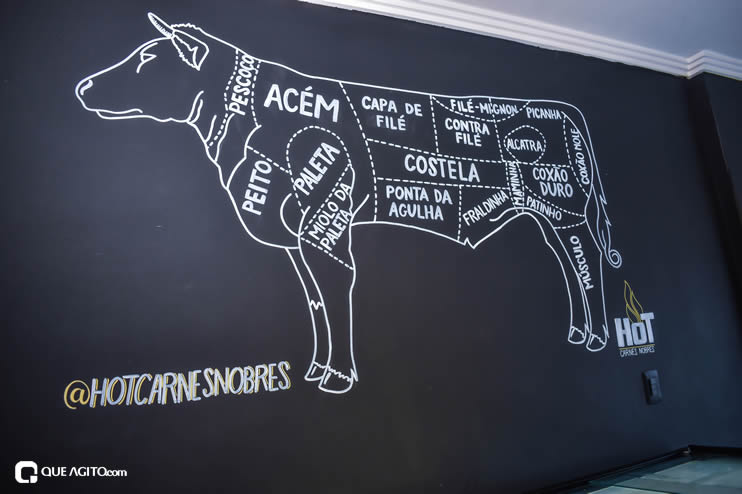 PESCOÇO
ACÉM
CAPA DE
FILÉ
FILÉ-MIGNON
PICANHA
CONTRA
FILÉ
ALCATRA
COXÃO MOLE
PEITO
PALETA
MIOLO DA
PALETA
COSTELA
PONTA DA
AGULHA
FRALDINHA
MAMINHA
COXÃO
DURO
PATINHO
MÚSCULO
HOT
CARNES NOBRES
@HOTCARNESNOBRES
QUE AGITO.com